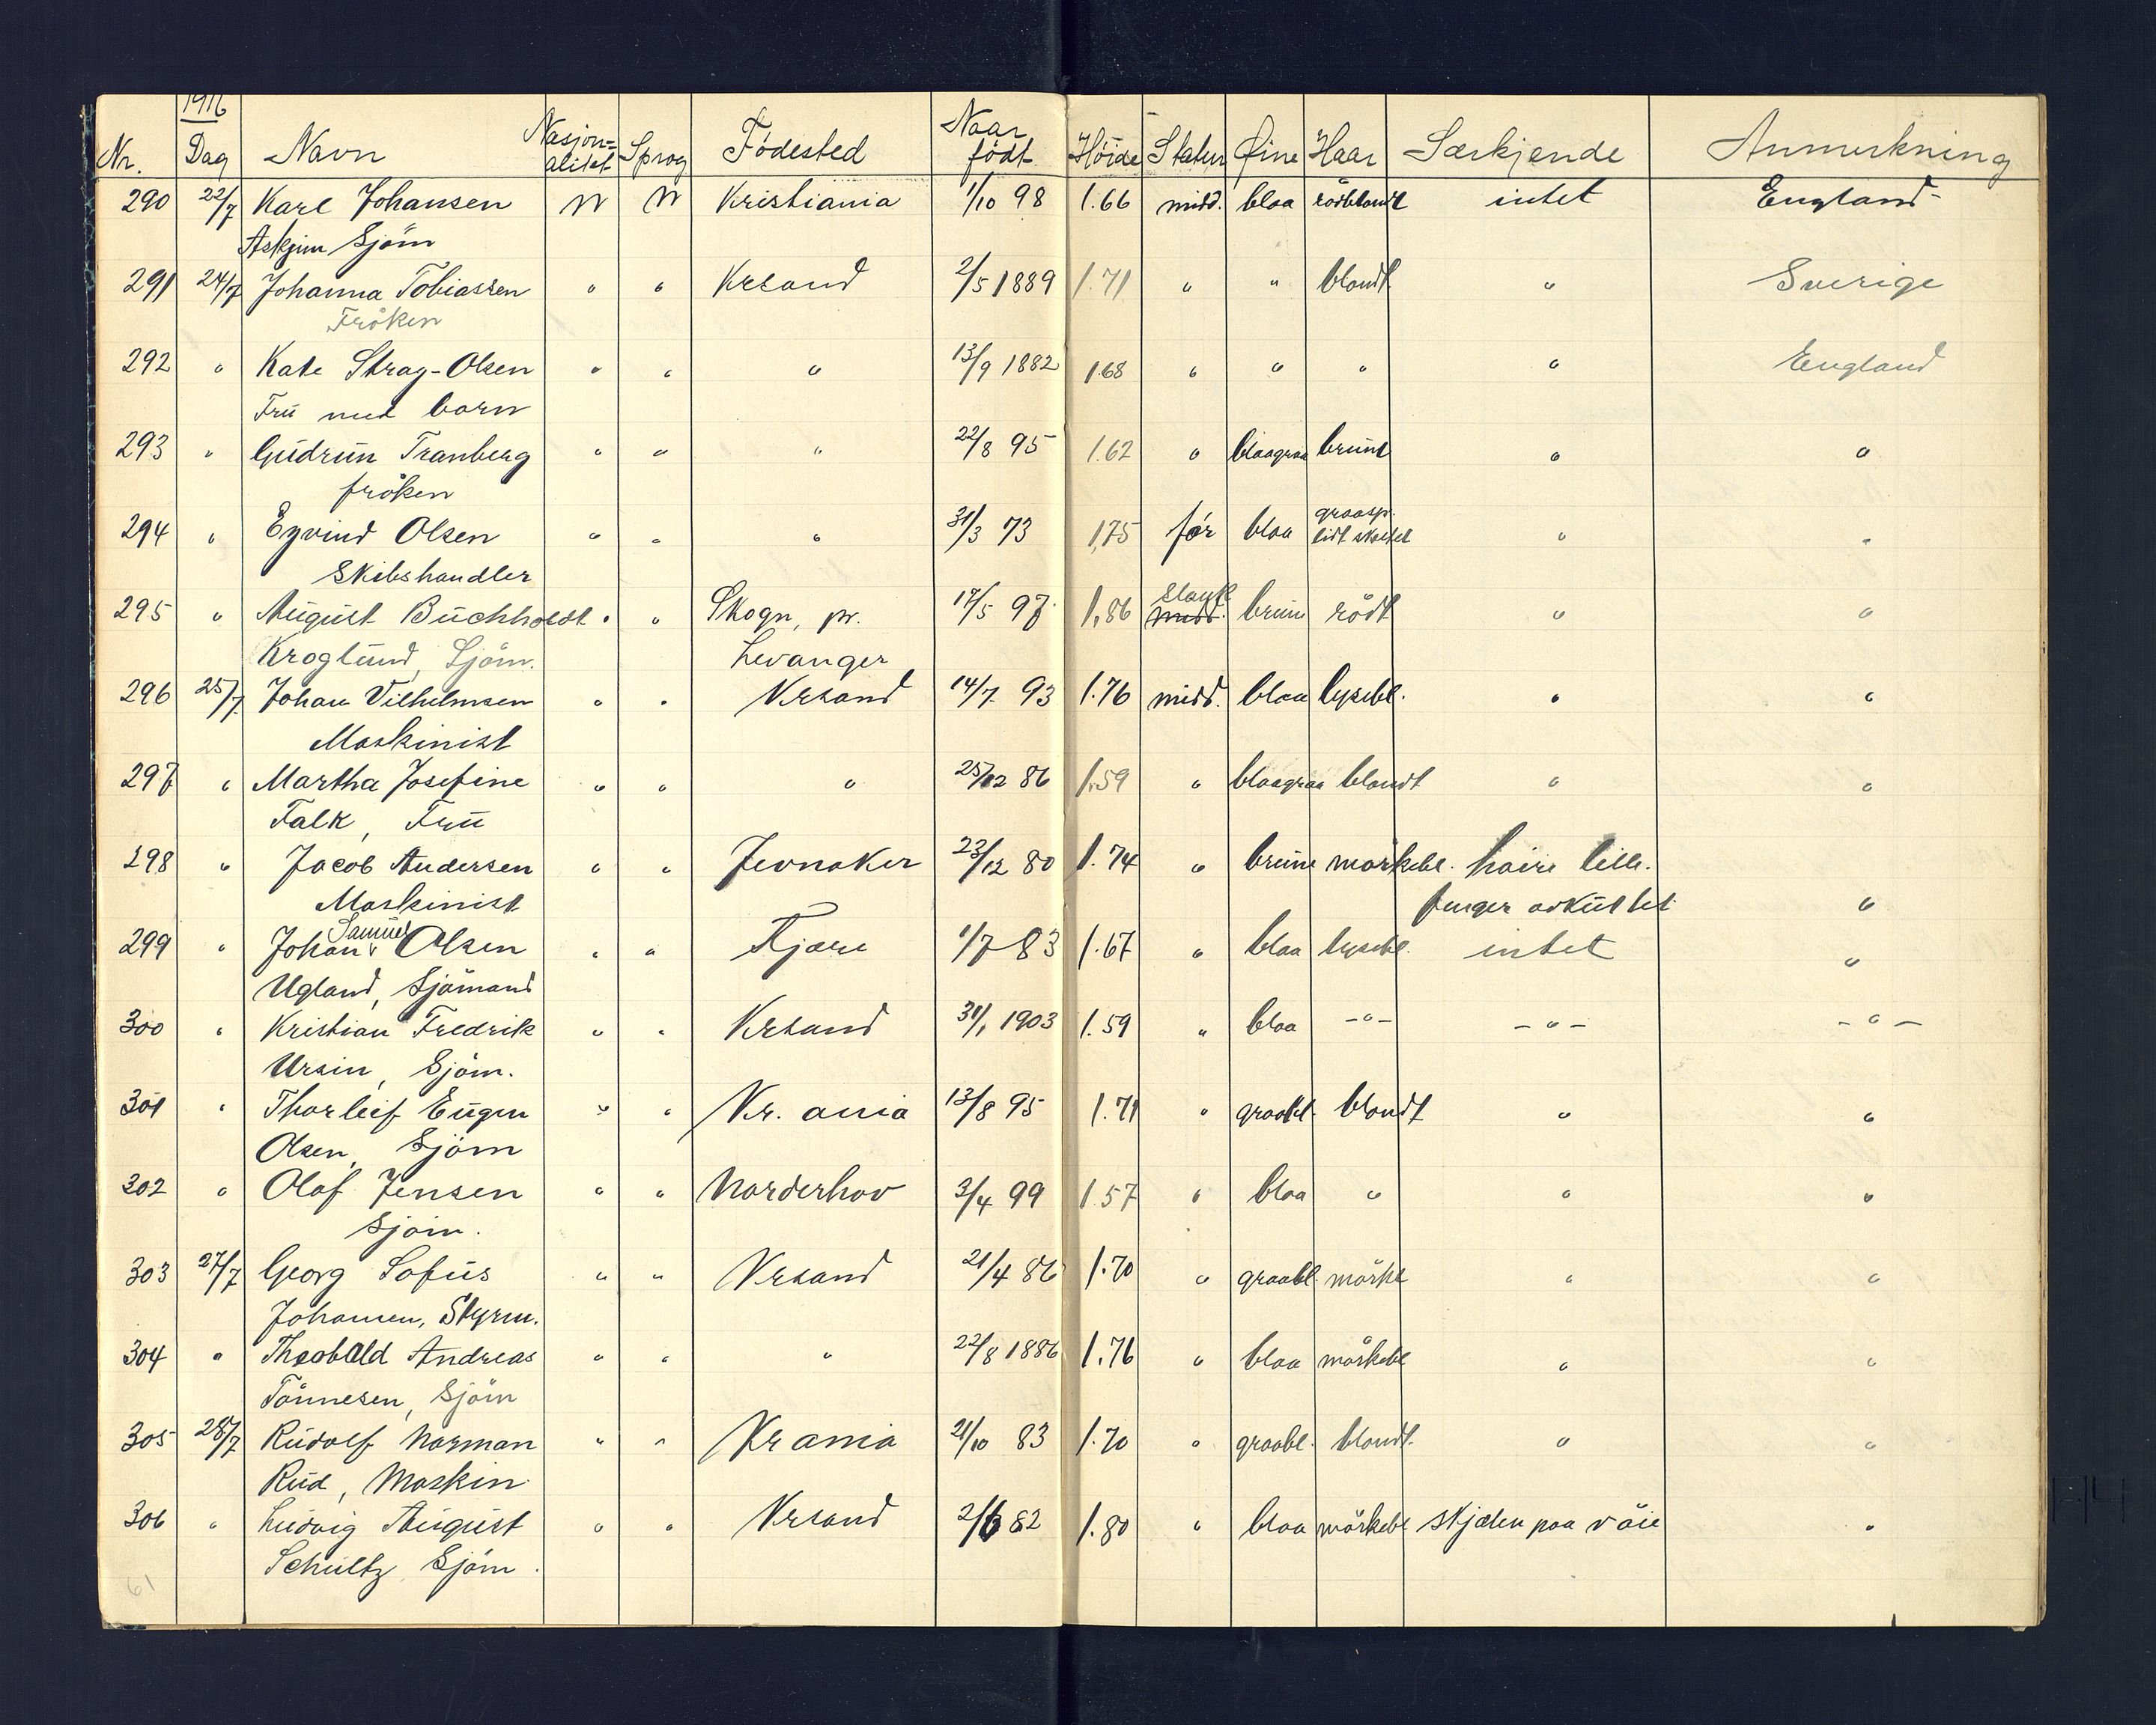 1916
Nr. Dag Navn Nasjon=alitet Sprog Födested Naar födt Höide Statur Øine Haar Særkjende Anmerkning
290 22/7 Karl Johansen N N Kristiania 1/10 98 1.66 midd. blaa rödblondt intet England
Askjim Sjöm
291 24/7 Johanna Tobiassen " " Krsand 2/5 1889 1.71 " " blondt " Sverige
Fröken
292 " Kate Stray-Olsen " " " 13/9 1882 1.68 " " " " England
Frü med barn
293 " Gudrun Tranberg " " " 22/8 95 1.62 " blaagraa brunt " "
fröken
294 " Eyvind Olsen " " " 31/3 73 1,75 før blaa graasp. lidt skaldet " "
Skibshandler
295 " August Buchholdt " " Skogn, pr. 17/5 97 1.86 slank midd. brune rödt " "
Kroglund, Sjöm. Levanger
296 25/7 Johan Vilhelmsen " " Krsand 14/7 93 1.76 midd. blaa lysebl. " "
Maskinist
297 " Martha Josefine " " " 25/12 86 1.59 " blaagraa blondt " "
Falk, Frü
298 " Jacob Andersen " " Jevnaker 23/12 80 1.74 " brune mörkebl. höire lille.
Maskinist finger avkuttet "
299 " Johan Samuel Olsen " " Fjære 1/7 83 1.67 " blaa lysebl. intet "
Ugland, Sjömand
300 " Kristian Fredrik " " Krsand 31/1 1903 1.59 " blaa -"- -"- -"-
Ursin, Sjöm.
301 " Thorleif Eugen " " Kr. ania 13/8 95 1.71 " graabl. blondt " "
Olsen, Sjöm
302 " Olaf Jensen " " Norderhov 3/4 99 1.57 " blaa " " "
Sjöm.
303 27/7 Georg Sofus " " Krsand 21/4 86 1.70 " graabl. mörkt " "
Johansen, Styrm.
304 " Theobald Andreas " " " 22/8 1886 1.76 " blaa mörkebl " "
Tönnesen, Sjöm
305 28/7 Rudolf Norman " " Krania 21/10 83 1.70 " graabl. blondt " "
Rud, Maskin
306 " Ludvig August " " Krsand 2/6 82 1.80 " blaa mörkebl skjelen paa v öie "
Schultz, Sjöm.
61